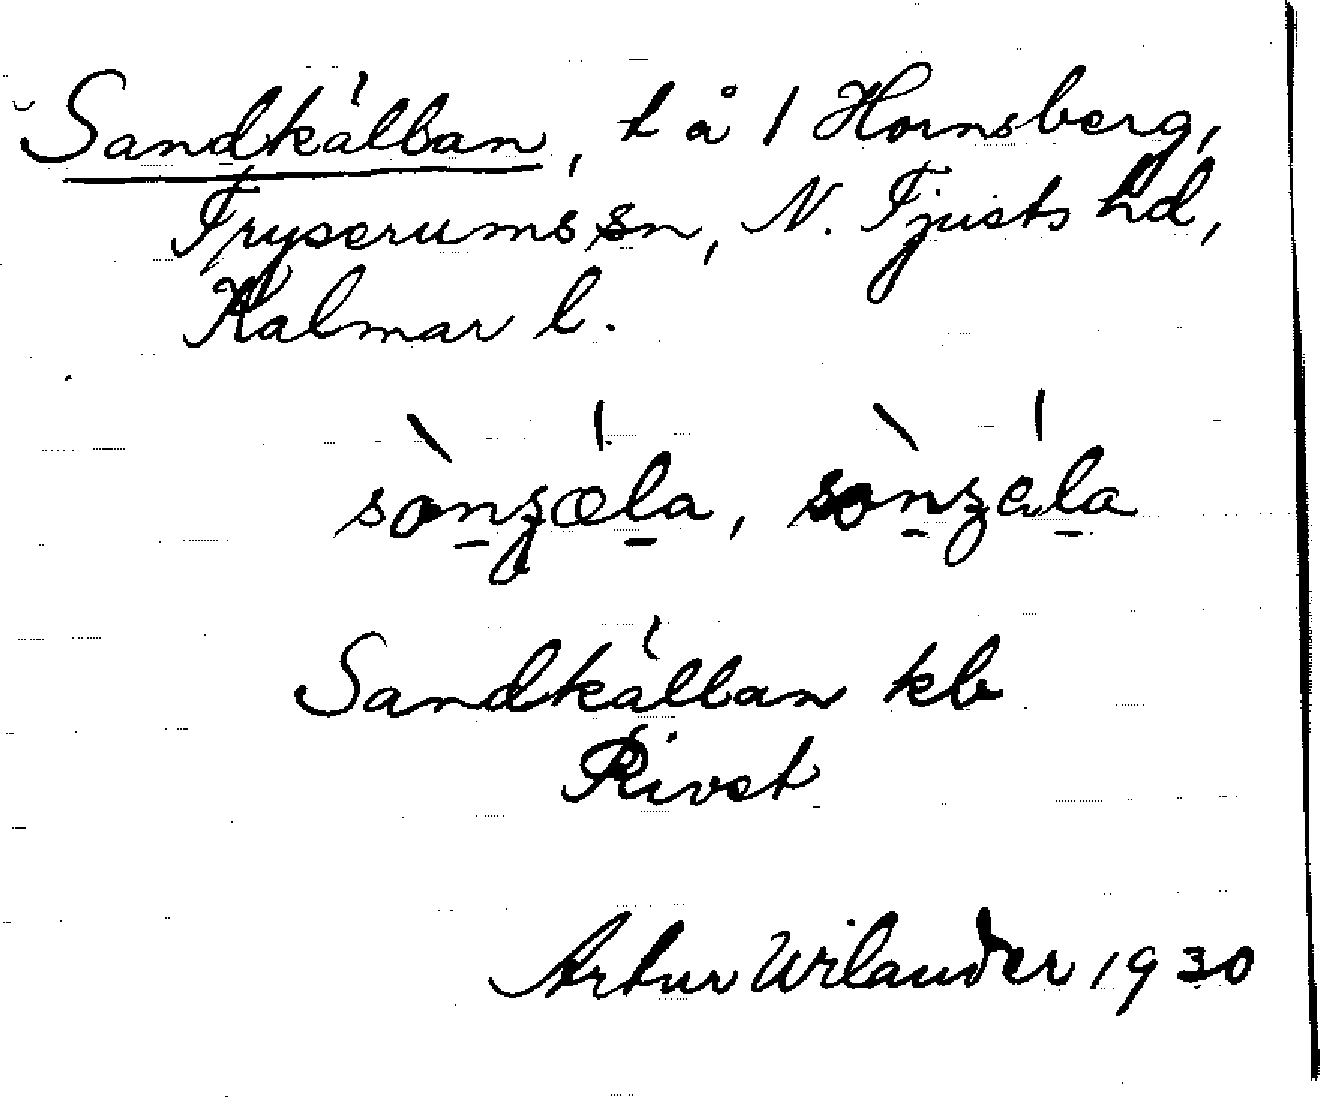 Sandkállan, t å 1 Hornsberg,
Tryserums sn, N. Tjusts hd,
Kalmar l.
Sandkállan kb
Rivet
Artur Wilander 1930